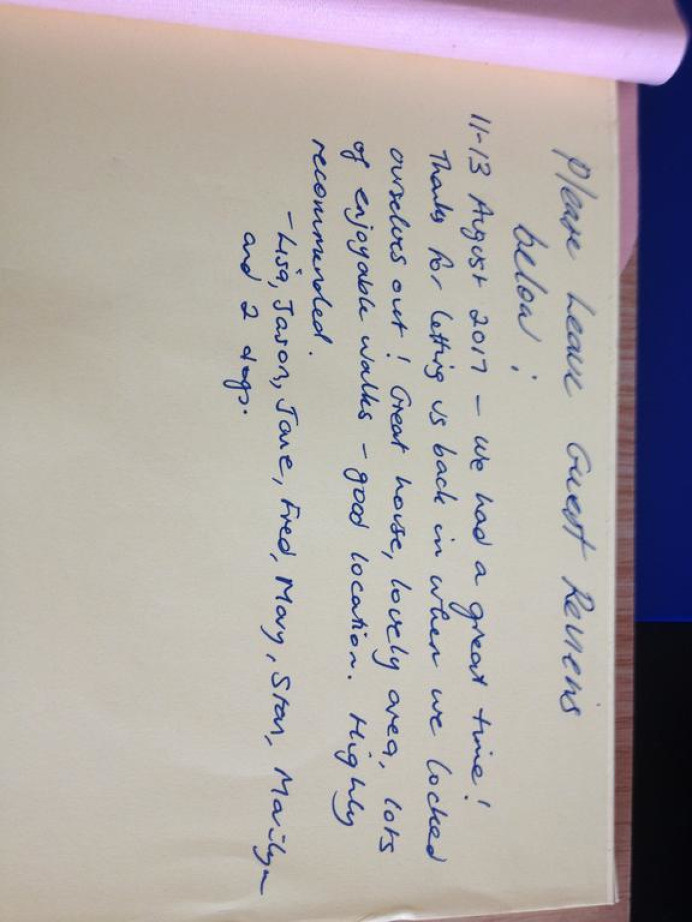 Please Leave Guest Reviews
below!
11-13 August 2017 - we had a great time!
Thanks for letting us back in when we locked
ourselves out! Great house, lovely area, lots
of enjoyable walks - good location. Highly
recommended.
- Lisa, Jason, Jane, Fred, Mary, Stan, Marilyn
and 2 dogs.